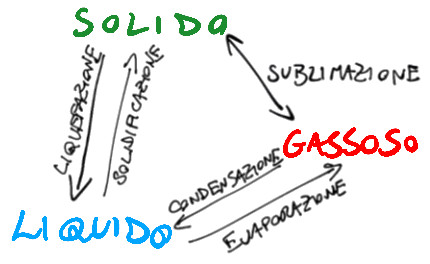 SOLIDO
LIQUEFAZIONE
SOLIDIFICAZIONE
SUBLIMAZIONE
GASSOSO
CONDENSAZIONE
LIQUIDO
EVAPORAZIONE